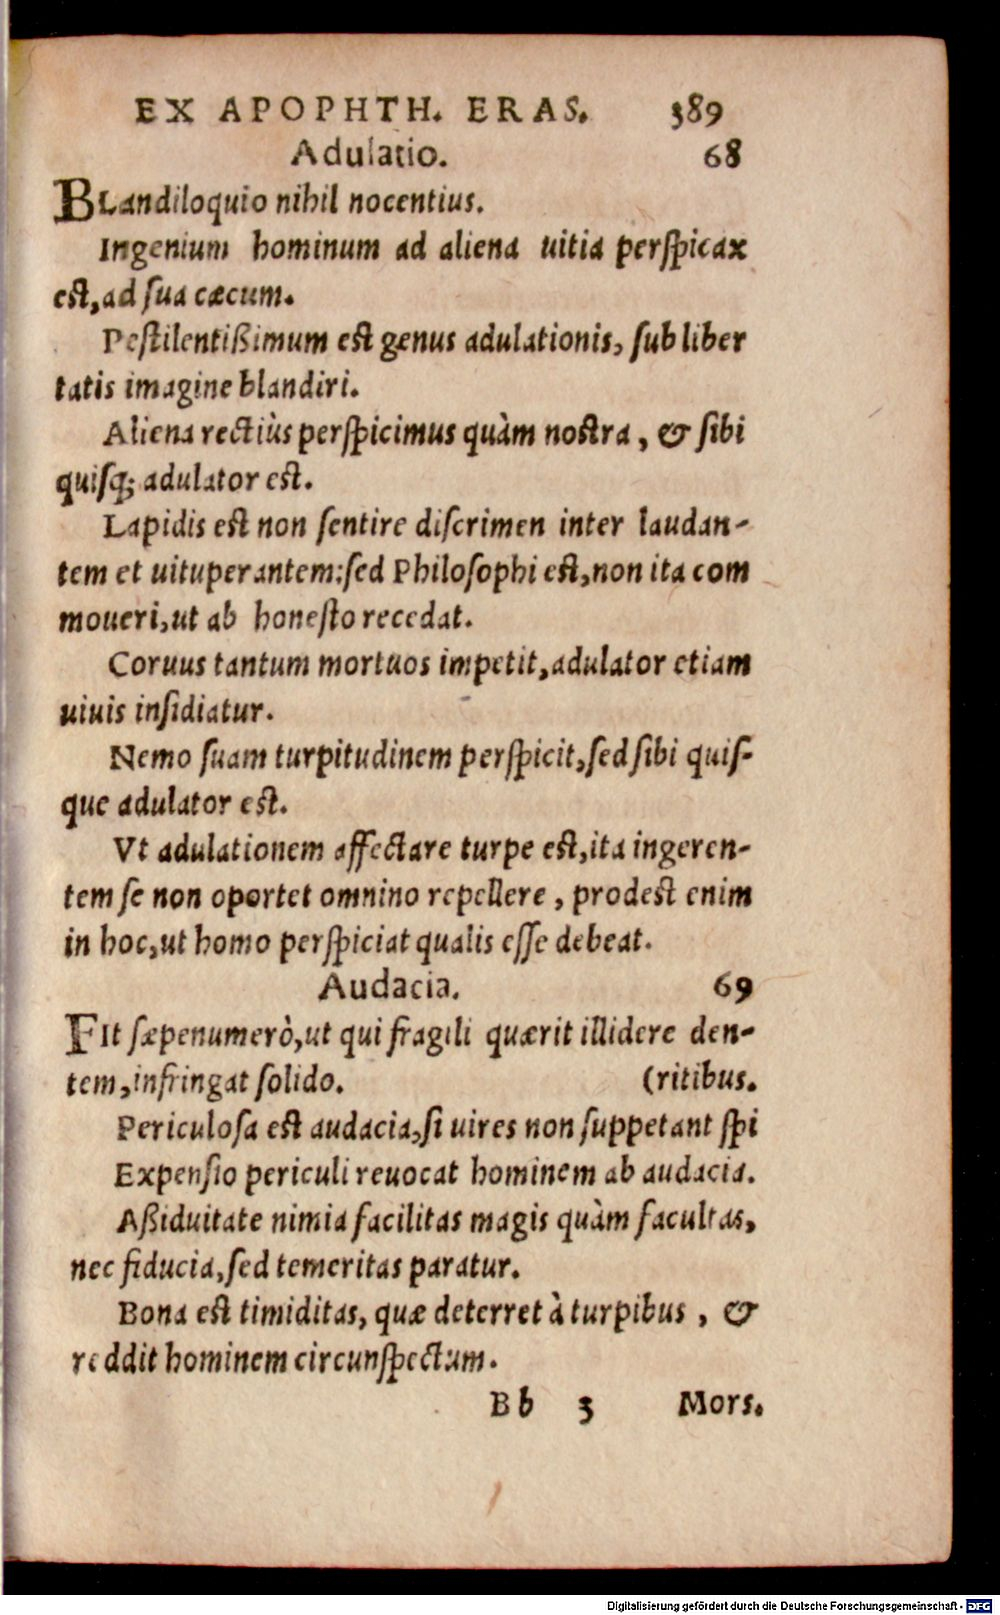 EX APOPHTH. ERAS. 389
Adulatio. 68
BLandiloquio nihil nocentius.
Ingenium hominum ad aliena uitia perſpicax
eſt, ad ſua cæcum.
Peſtilentißimum eſt genus adulationis, ſub liber
tatis imagine blandiri.
Aliena rectiùs perſpicimus quàm noſtra, & ſibi
quiſq; adulator eſt.
Lapidis eſt non ſentire diſcrimen inter laudan-
tem et uituperantem: ſed Philoſophi eſt, non ita com
moueri, ut ab honeſto recedat.
Coruus tantum mortuos impetit, adulator etiam
uiuis inſidiatur.
Nemo ſuam turpitudinem perſpicit, ſed ſibi quiſ-
que adulator eſt.
Vt adulationem affectare turpe eſt, ita ingeren-
tem ſe non oportet omnino repellere, prodeſt enim
in hoc, ut homo perſpiciat qualis eſſe debeat.
Audacia. 69
FIt ſæpenumerò, ut qui fragili quærit illidere den-
tem, infringat ſolido. (ritibus.
Periculoſa eſt audacia, ſi uires non ſuppetant ſpi
Expenſio periculi reuocat hominem ab audacia.
Aßiduitate nimia facilitas magis quàm facultas,
nec fiducia, ſed temeritas paratur.
Bona eſt timiditas, quæ deterret à turpibus, &
reddit hominem circunſpectum.
Bb 3 Mors.
Digitalisierung gefördert durch die Deutsche Forschungsgemeinschaft - DFG